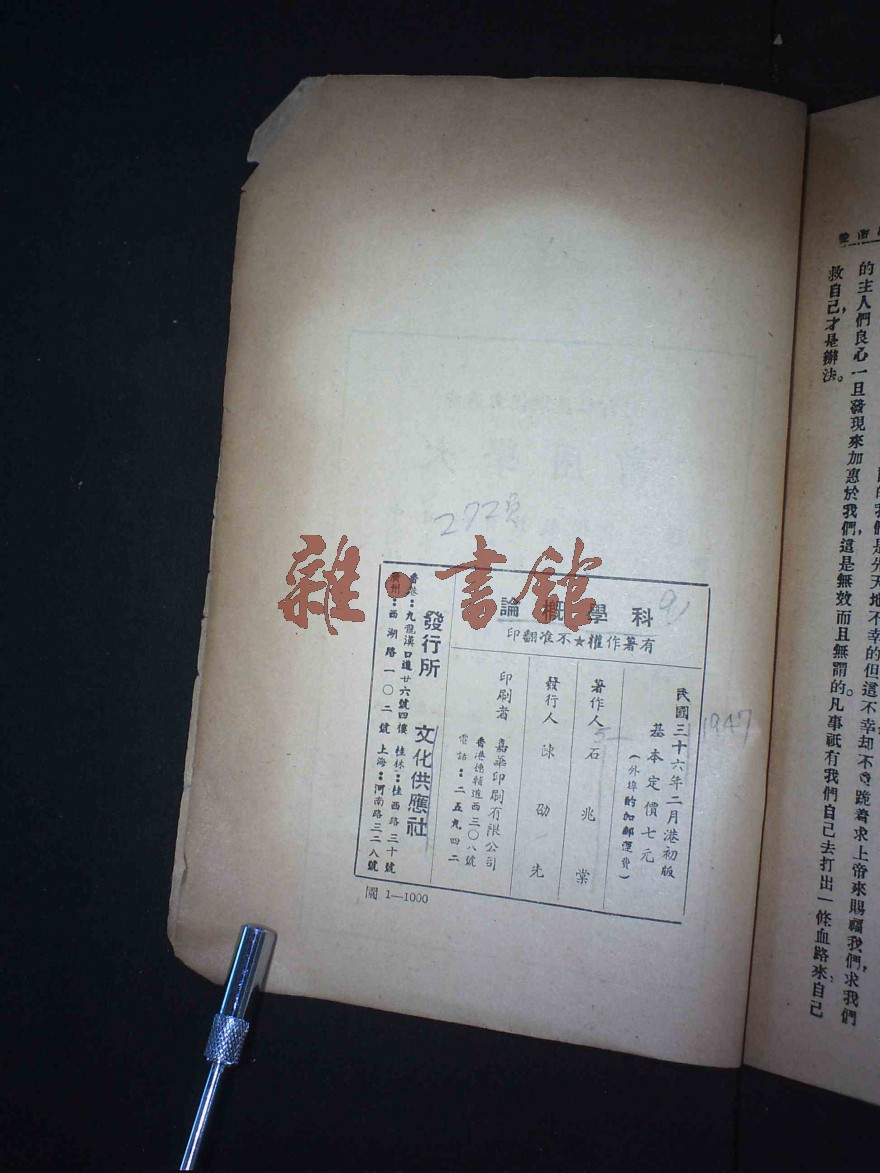 雜·書館
272頁
科學概論
有著作權★不准翻印
民國三十六年二月港初版
1947
基本定價七元
(外埠酌加郵運費)
著作人 石兆棠
發行人 陳劭先
印刷者 嘉華印刷有限公司
香港德輔道西三〇八號
電話：二五九四二
發行所 文化供應社
香港：九龍漢口道廿六號四樓 桂林：桂西路三十號
廣州：西湖路一〇二號 上海：河南路三二八號
1—1000
的主人們良心一旦發現來加惠於我們，這是無效而且無謂的。凡事祇有我們自己去打出一條血路來自己
救自己，才是辦法。